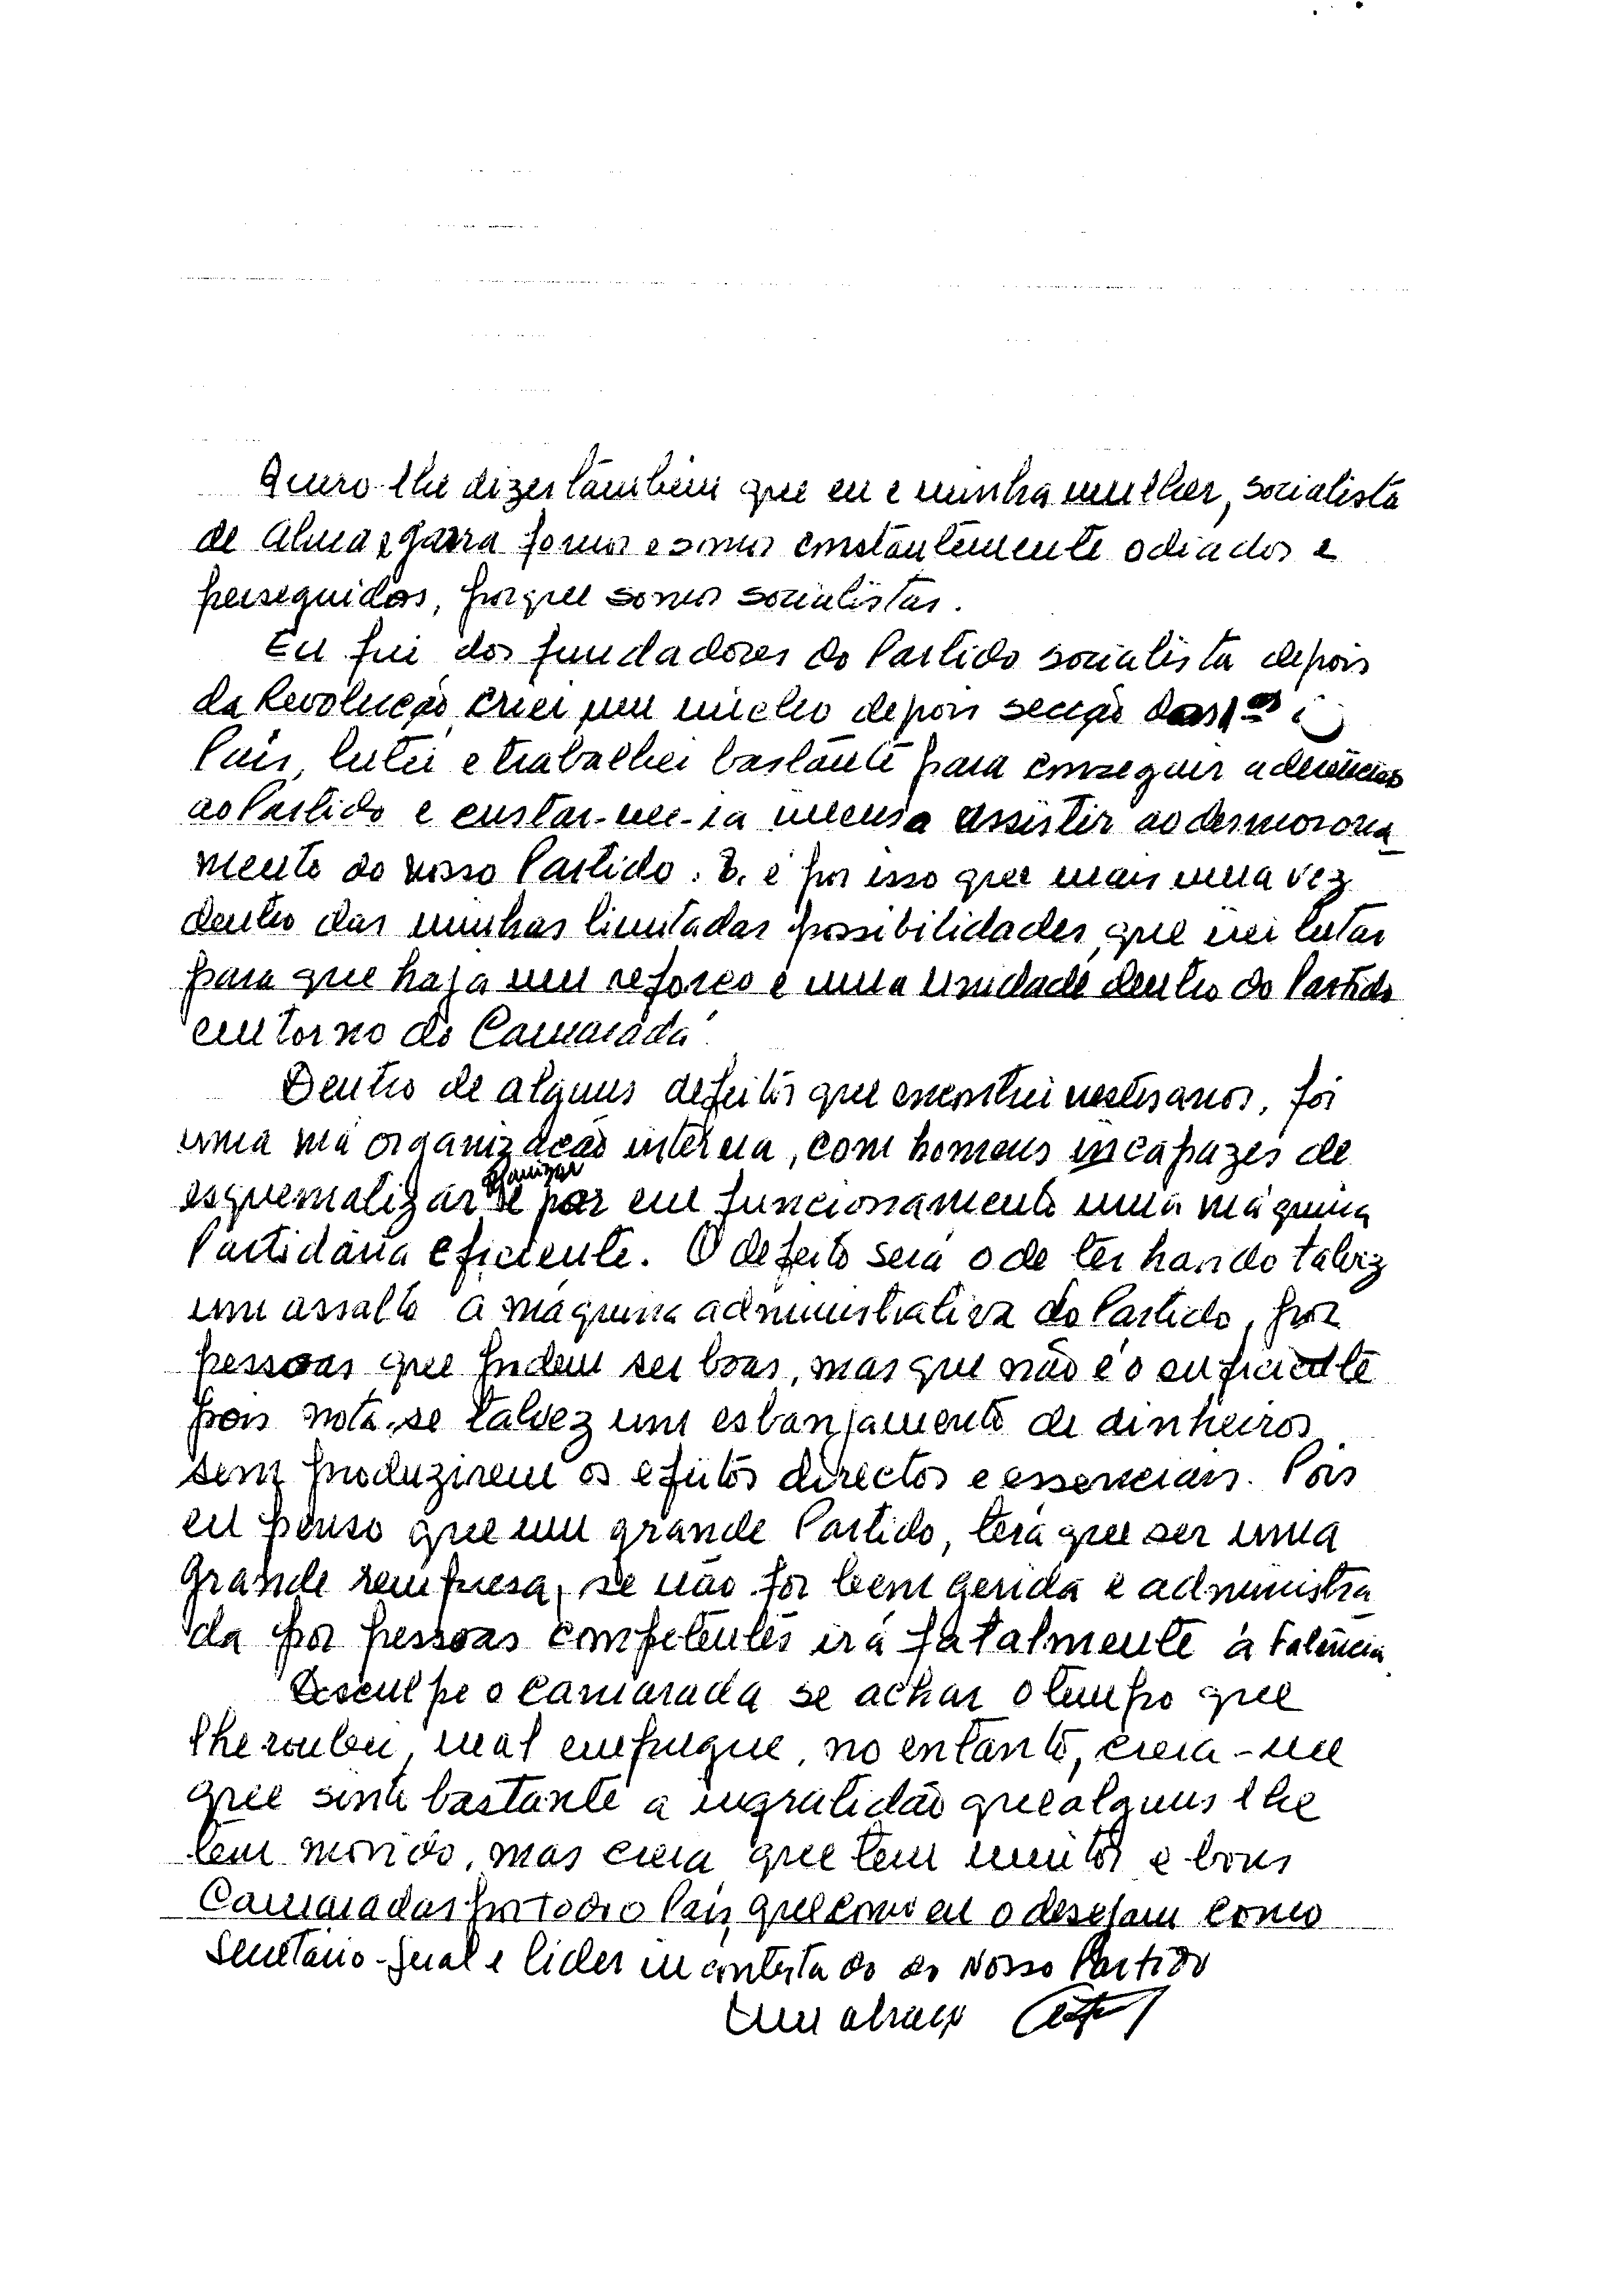 Quero-lhe dizer também que eu e minha mulher, socialista
de Alma e garra fomos e somos constantemente odiados e
perseguidos, porque somos socialistas.
Eu fui dos fundadores do Partido socialista depois
da Revolução criei um núcleo depois secção das 1as
País, lutei e trabalhei bastante para conseguir aderências
ao Partido e custar-me-ia imenso assistir ao desmorona_
mento do nosso Partido. E. é por isso que mais uma vez
dentro das minhas limitadas possibilidades, que irei lutar
para que haja um reforço e uma unidade dentro do Partido
em torno do Camarada.
Dentro de alguns defeitos que encontrei nestes anos, foi
uma má organização interna, com homens incapazes de
esquematizar organizar e por em funcionamento uma máquina
Partidária eficiente. O defeito será o de ter havido talvez
um assalto à máquina administrativa do Partido, por
pessoas que podem ser boas, mas que não é o suficiente
pois nota-se talvez um esbanjamento de dinheiros
sem produzirem os efeitos directos e essenciais. Pois
eu penso que um grande Partido, terá que ser uma
grande empresa, se não for bem gerida e administra_
da por pessoas competentes irá fatalmente à falência.
Desculpe o camarada se achar o tempo que
lhe roubei, mal empregue, no entanto, creia-me
que sinto bastante a ingratidão que alguns lhe
têm movido, mas creia que tem muitos e bons
Camaradas por todo o País, que como eu o desejam como
Secretário-Geral e lider incontestado do Nosso Partido
Um abraço